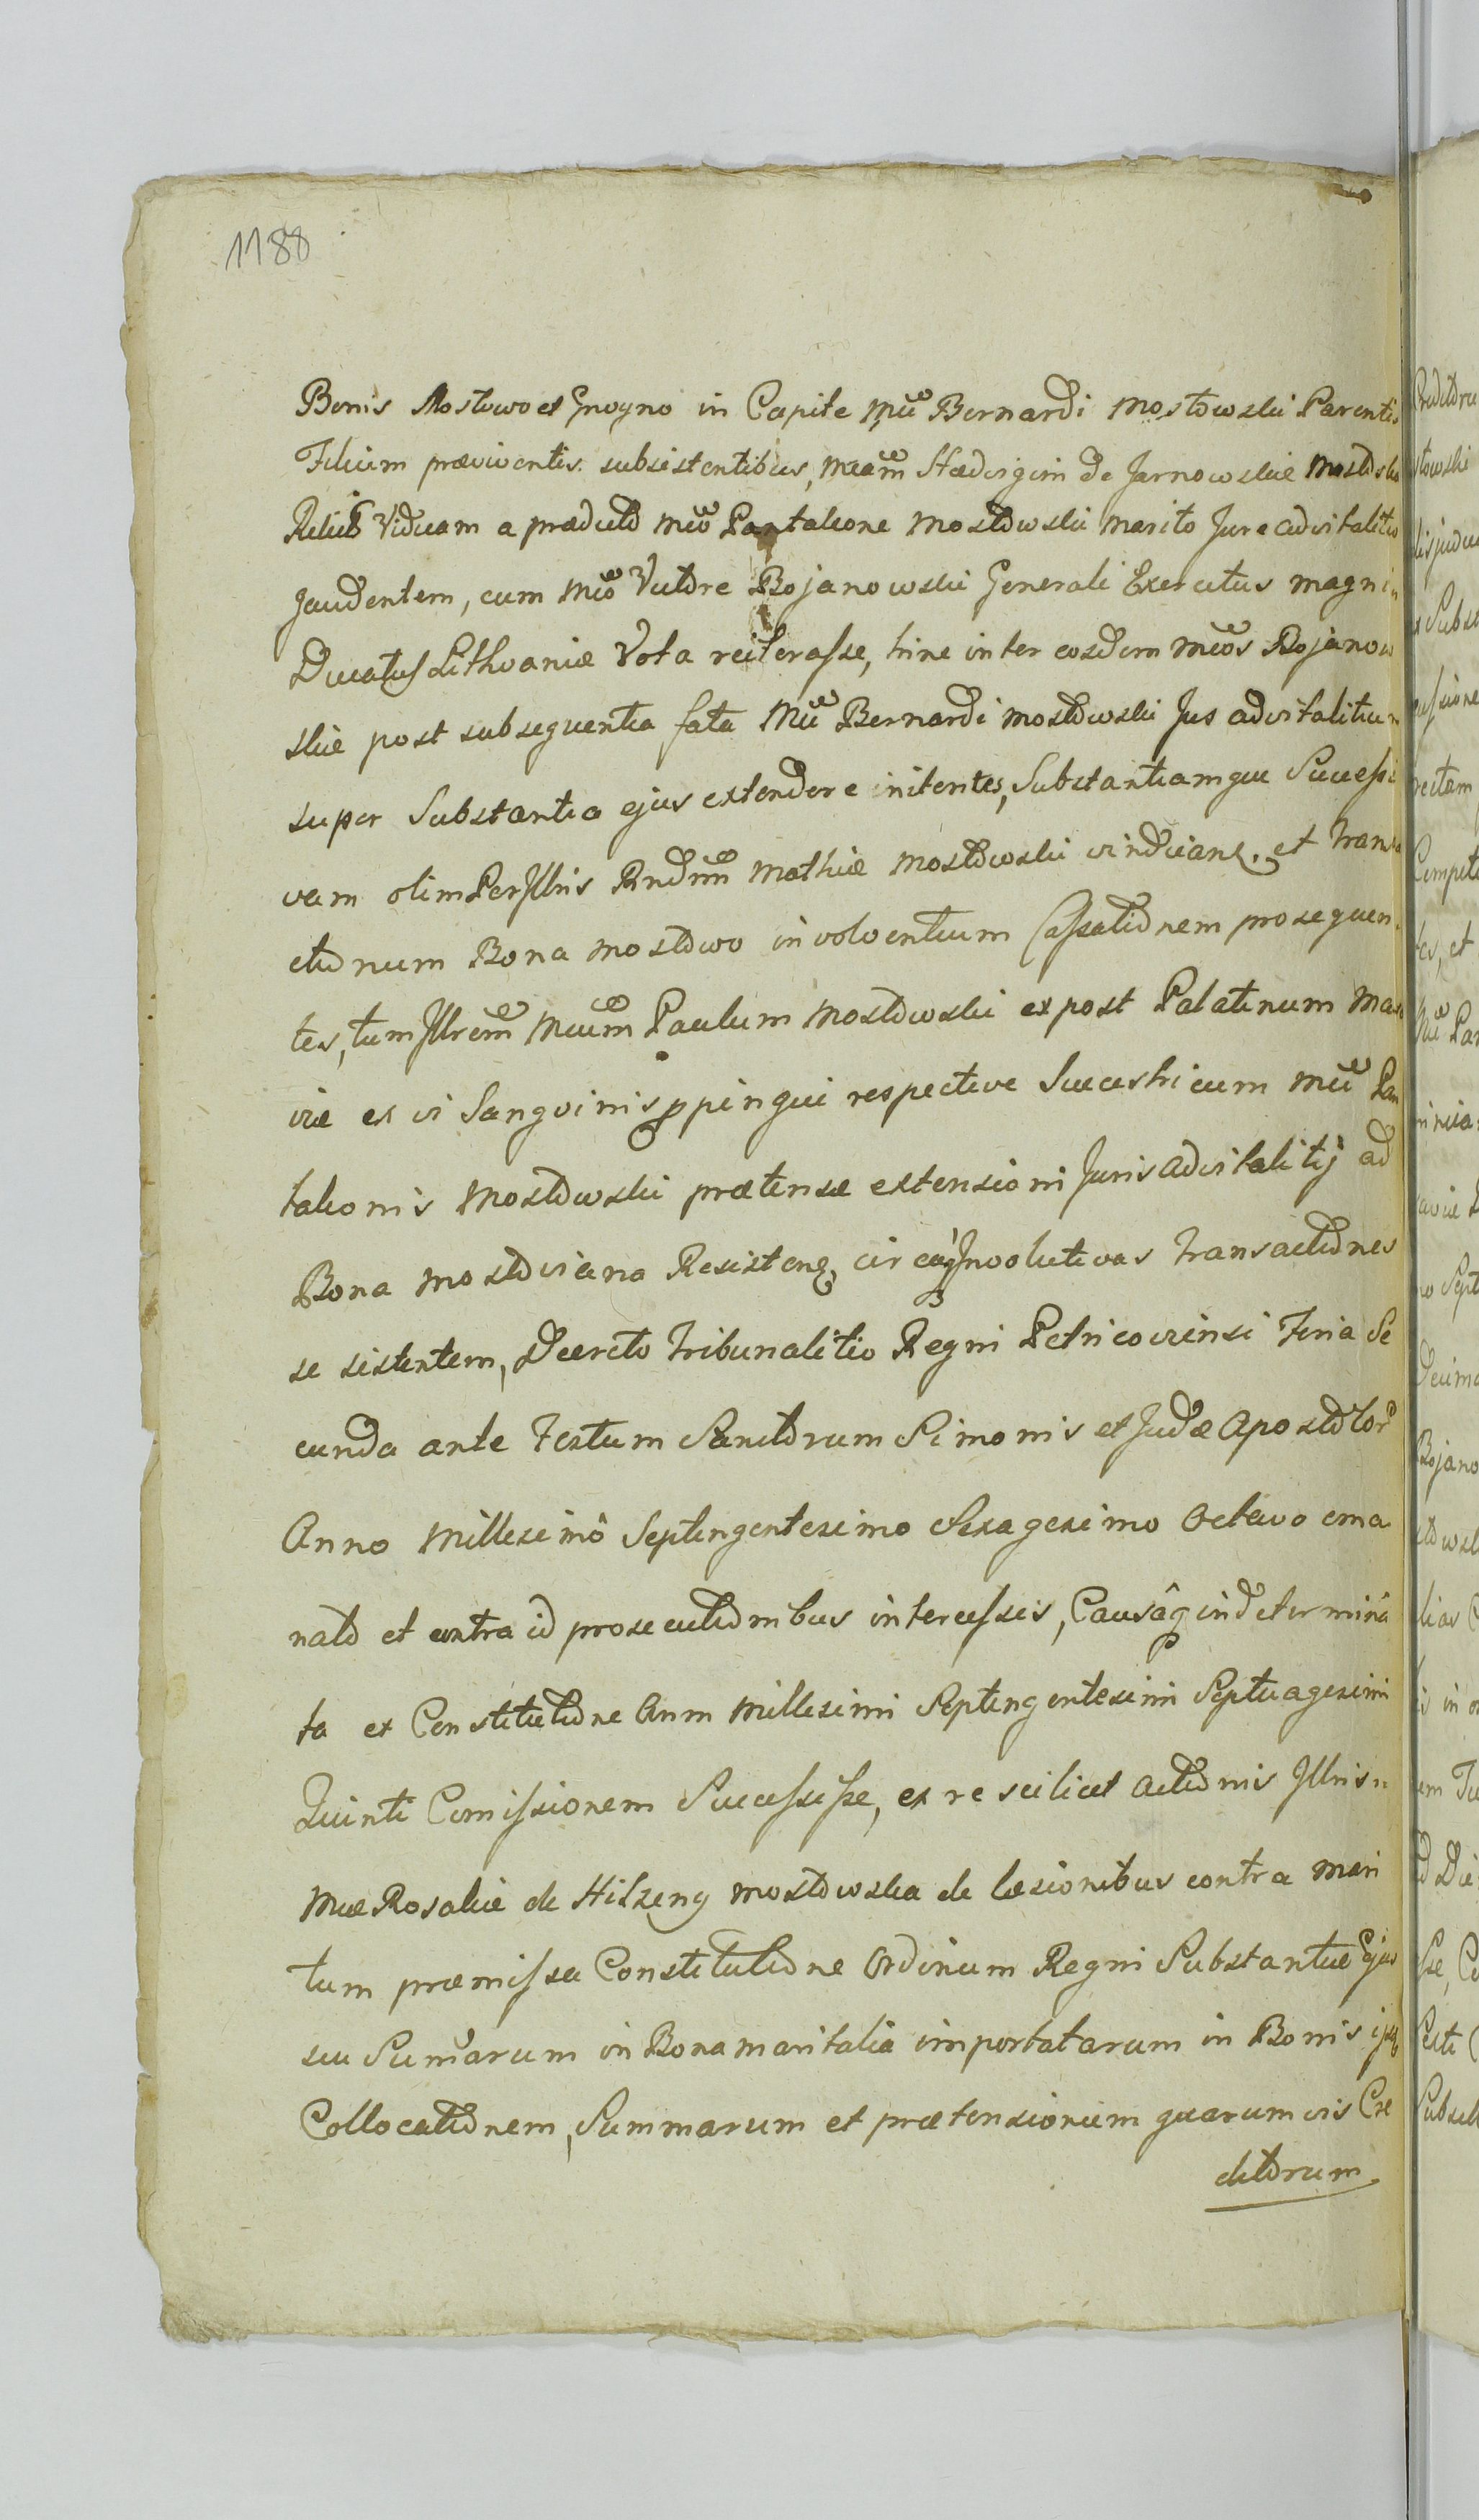 1188
Bonis Mostowo et Gnoyno in Capite Mci Bernardi Mostowski Parentis
Filium præviventis subsistentibus, Mcam Hedvigim de Jarnowskie Mostowska
Relictam Viduam a prædicto Mco Pantaleone Mostowski marito Jure advitalitio
gaudentem, cum Mco Victore Bojanowski Generali Exercitus magni
Ducatus Lithvaniæ Vota reiterasse, hinc inter eosdem Mcos Bojanow
skie post subsequentia fata Mci Bernardi Mostowski Jus advitalitium
super Substantia ejus extendere initentes, Substantiamque Successi
vam olim Perillris Rndmi Mathiæ Mostowski vindicane. et Transa
ctionum Bona Mostowo involventium Cassationem prosequen
tes, tum Illrem Mcum Paulum Mostowski ex post Palatinum Maso
viæ ex vi Sangvinis ppingui respective Successricum Mci Pan
taleonis Mostowski prætensæ extensioni Juris advitalitij ad
Bona Mostoviana Resistene, circaq Involutivas Transactiones
se sistentem, Decreto Tribunalitio Regni Petricoviensi Feria Se
cunda ante Festum Sanctorum Simonis et Judæ Apostolor
Anno Millesimô Septingentesimo Sexagesimo Octavo ema
nato et contra id prosecutionibus intercessis, Causâq indetermina
ta ex Constitutione Anni Millesimi Septingentesimi Septuagesimi
Quinti Comissionem Successisse, ex re scilicet actionis Illris
Mcæ Rosaliæ de Hilzeny Mostowska de læsionibus contra Mari
tum præmissa Constitutione Ordinum Regni Substantiæ Ejus
seu Sumarum in Bona maritalia importatarum in Bonis
Collocationem, Summarum et prætensionum quarumvis Cre
ditorum